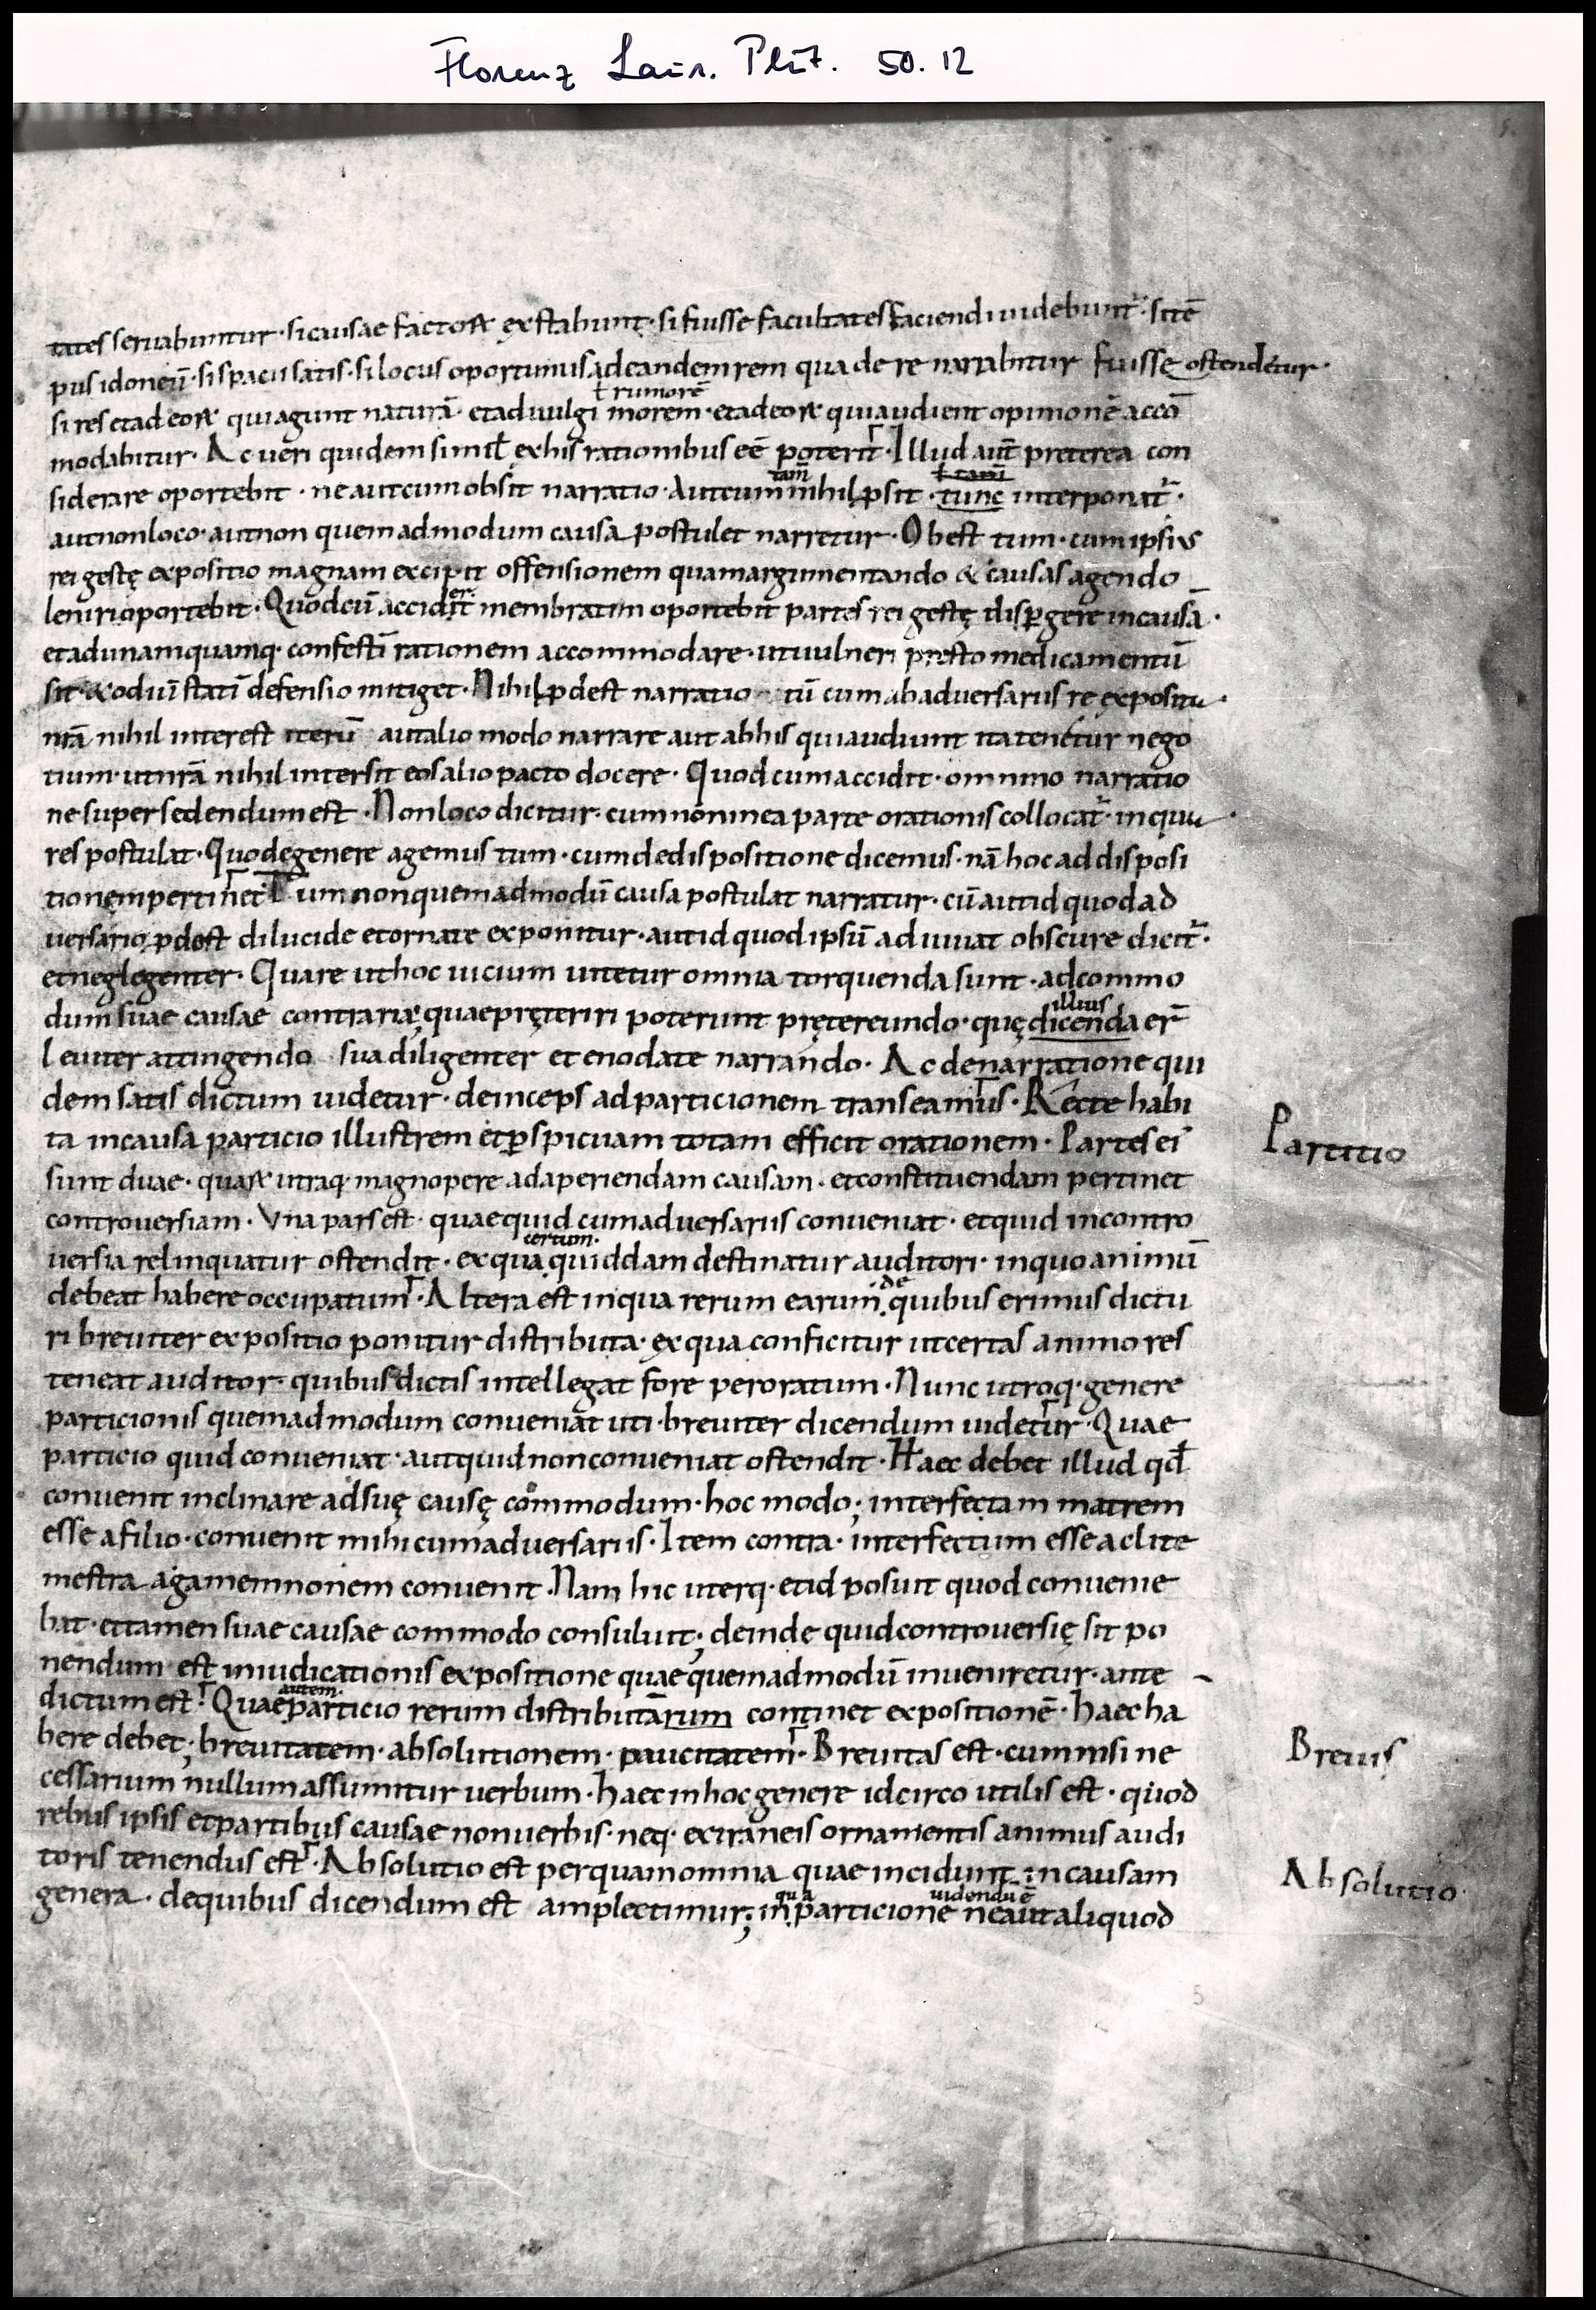 Florenz Laur. Plut. 50.12
tates seruabuntur· si causae factorꝝ exstabunt· si fuisse facultates faciendi uidebunt᷑· si tē
pus idoneū· si spacii satis· si locus oportunus ad eandem rem qua de re narrabitur fuisse ostendetur·
ł rumorē
si res et ad eorꝝ qui agunt naturā· et ad uulgi morem· et ad eorꝝ qui audient opinionē accō
modabitur· Ac ueri quidem simiƚ ex his rationibus eē poterit· Illud aūt preterea con
tam̄ ł tam̄
siderare oportebit· ne aut cum obsit narratio· Aut cum nihil ꝓsit· tunc interponat᷑·
aut non loco· aut non quemadmodum causa postulet narretur· Obest tum· cum ipsius
rei gestę expositio magnam excipit offensionem quam argumentando & causas agendo
er·
leniri oportebit· Quod cū accidit membratim oportebit partes rei gestę disꝑgere in causā·
et ad unamquamq· confestī rationem accommodare· ut uulneri presto medicamentū
sit· & odiū statī defensio mitiget· Nihil ꝓdest narratio tū cum ab aduersariis re exposita·
nrā nihil interest iterū aut alio modo narrare aut ab his qui audiunt ita tenetur nego
tium· ut nrā nihil intersit eos alio pacto docere· Quod cum accidit· omnino narratio
ne supersedendum est· Non loco dicitur· cum non in ea parte orationis collocat᷑· in qua·
res postulat· Quo de genere agemus tum· cum de dispositione dicemus· nā hoc ad disposi
tionem pertinet Tum non quemadmodū causa postulat narratur· cū aut id quod ad
uersario ꝓdest dilucide et ornate exponitur· aut id quod ipsū adiuuat obscure dicit᷑·
et neglegenter· Quare ut hoc uicium uitetur omnia torquenda sunt· ad commo
illius
dum suae causae contraria· quae pręteriri poterunt pręetereundo· quę dicenda er̄
leuiter attingendo sua diligenter et enodate narrando· Ac de narratione qui
dem satis dictum uidetur· deinceps ad particionem transeamus· Recte habi
ta in causa particio illustrem et ꝑspicuam totam efficit orationem· Partes ei
Partitio
sunt duae· quarꝝ utraq· magnopere ad aperiendam causam· et constituendam pertinet
controuersiam· Vna pars est· quae quid cum aduersariis conueniat· et quid in contro
certum·
uersia relinquatur ostendit· ex qua quiddam destinatur auditori· in quo animū
de
debeat habere occupatum· Altera est in qua rerum earum quibus erimus dictu
ri breuiter expositio ponitur distributa· ex qua conficitur ut certas animo res
teneat auditor· quibus dictis intellegat fore peroratum· Nunc utroq· genere
particionis quemadmodum conueniat uti· breuiter dicendum uidetur· Quae
particio quid conueniat· aut quid non conueniat ostendit· Haec debet illud qđ
conuenit inclinare ad suę causę commodum· hoc modo; interfectam matrem
esse a filio· conuenit mihi cum aduersariis· Item contra· interfectum esse a clite
mestra agamemnonem conuenit· Nam hic uterq· et id posuit quod conuenie
bat· et tamen suae causae commodo consuluit; deinde quid controuersię sit po
nendum est in iudicationis expositione quae quemadmodū inueniretur· ante
autem·
dictum est· Quae particio rerum distributārum continet expositionē· haec ha
bere debet; breuitatem· absolutionem· paucitatem· Breuitas est· cum nisi ne
Breuis
cessarium nullum assumitur uerbum· haec in hoc genere idcirco utilis est· quod
rebus ipsis et partibus causae non uerbis· neq· extraneis ornamentis animus audi
toris tenendus est· Absolutio est per quam omnia quae incidunt in causam
Absolutio
qua uidendū ē
genera· de quibus dicendum est amplectimur; in particione ne aut aliquod
5